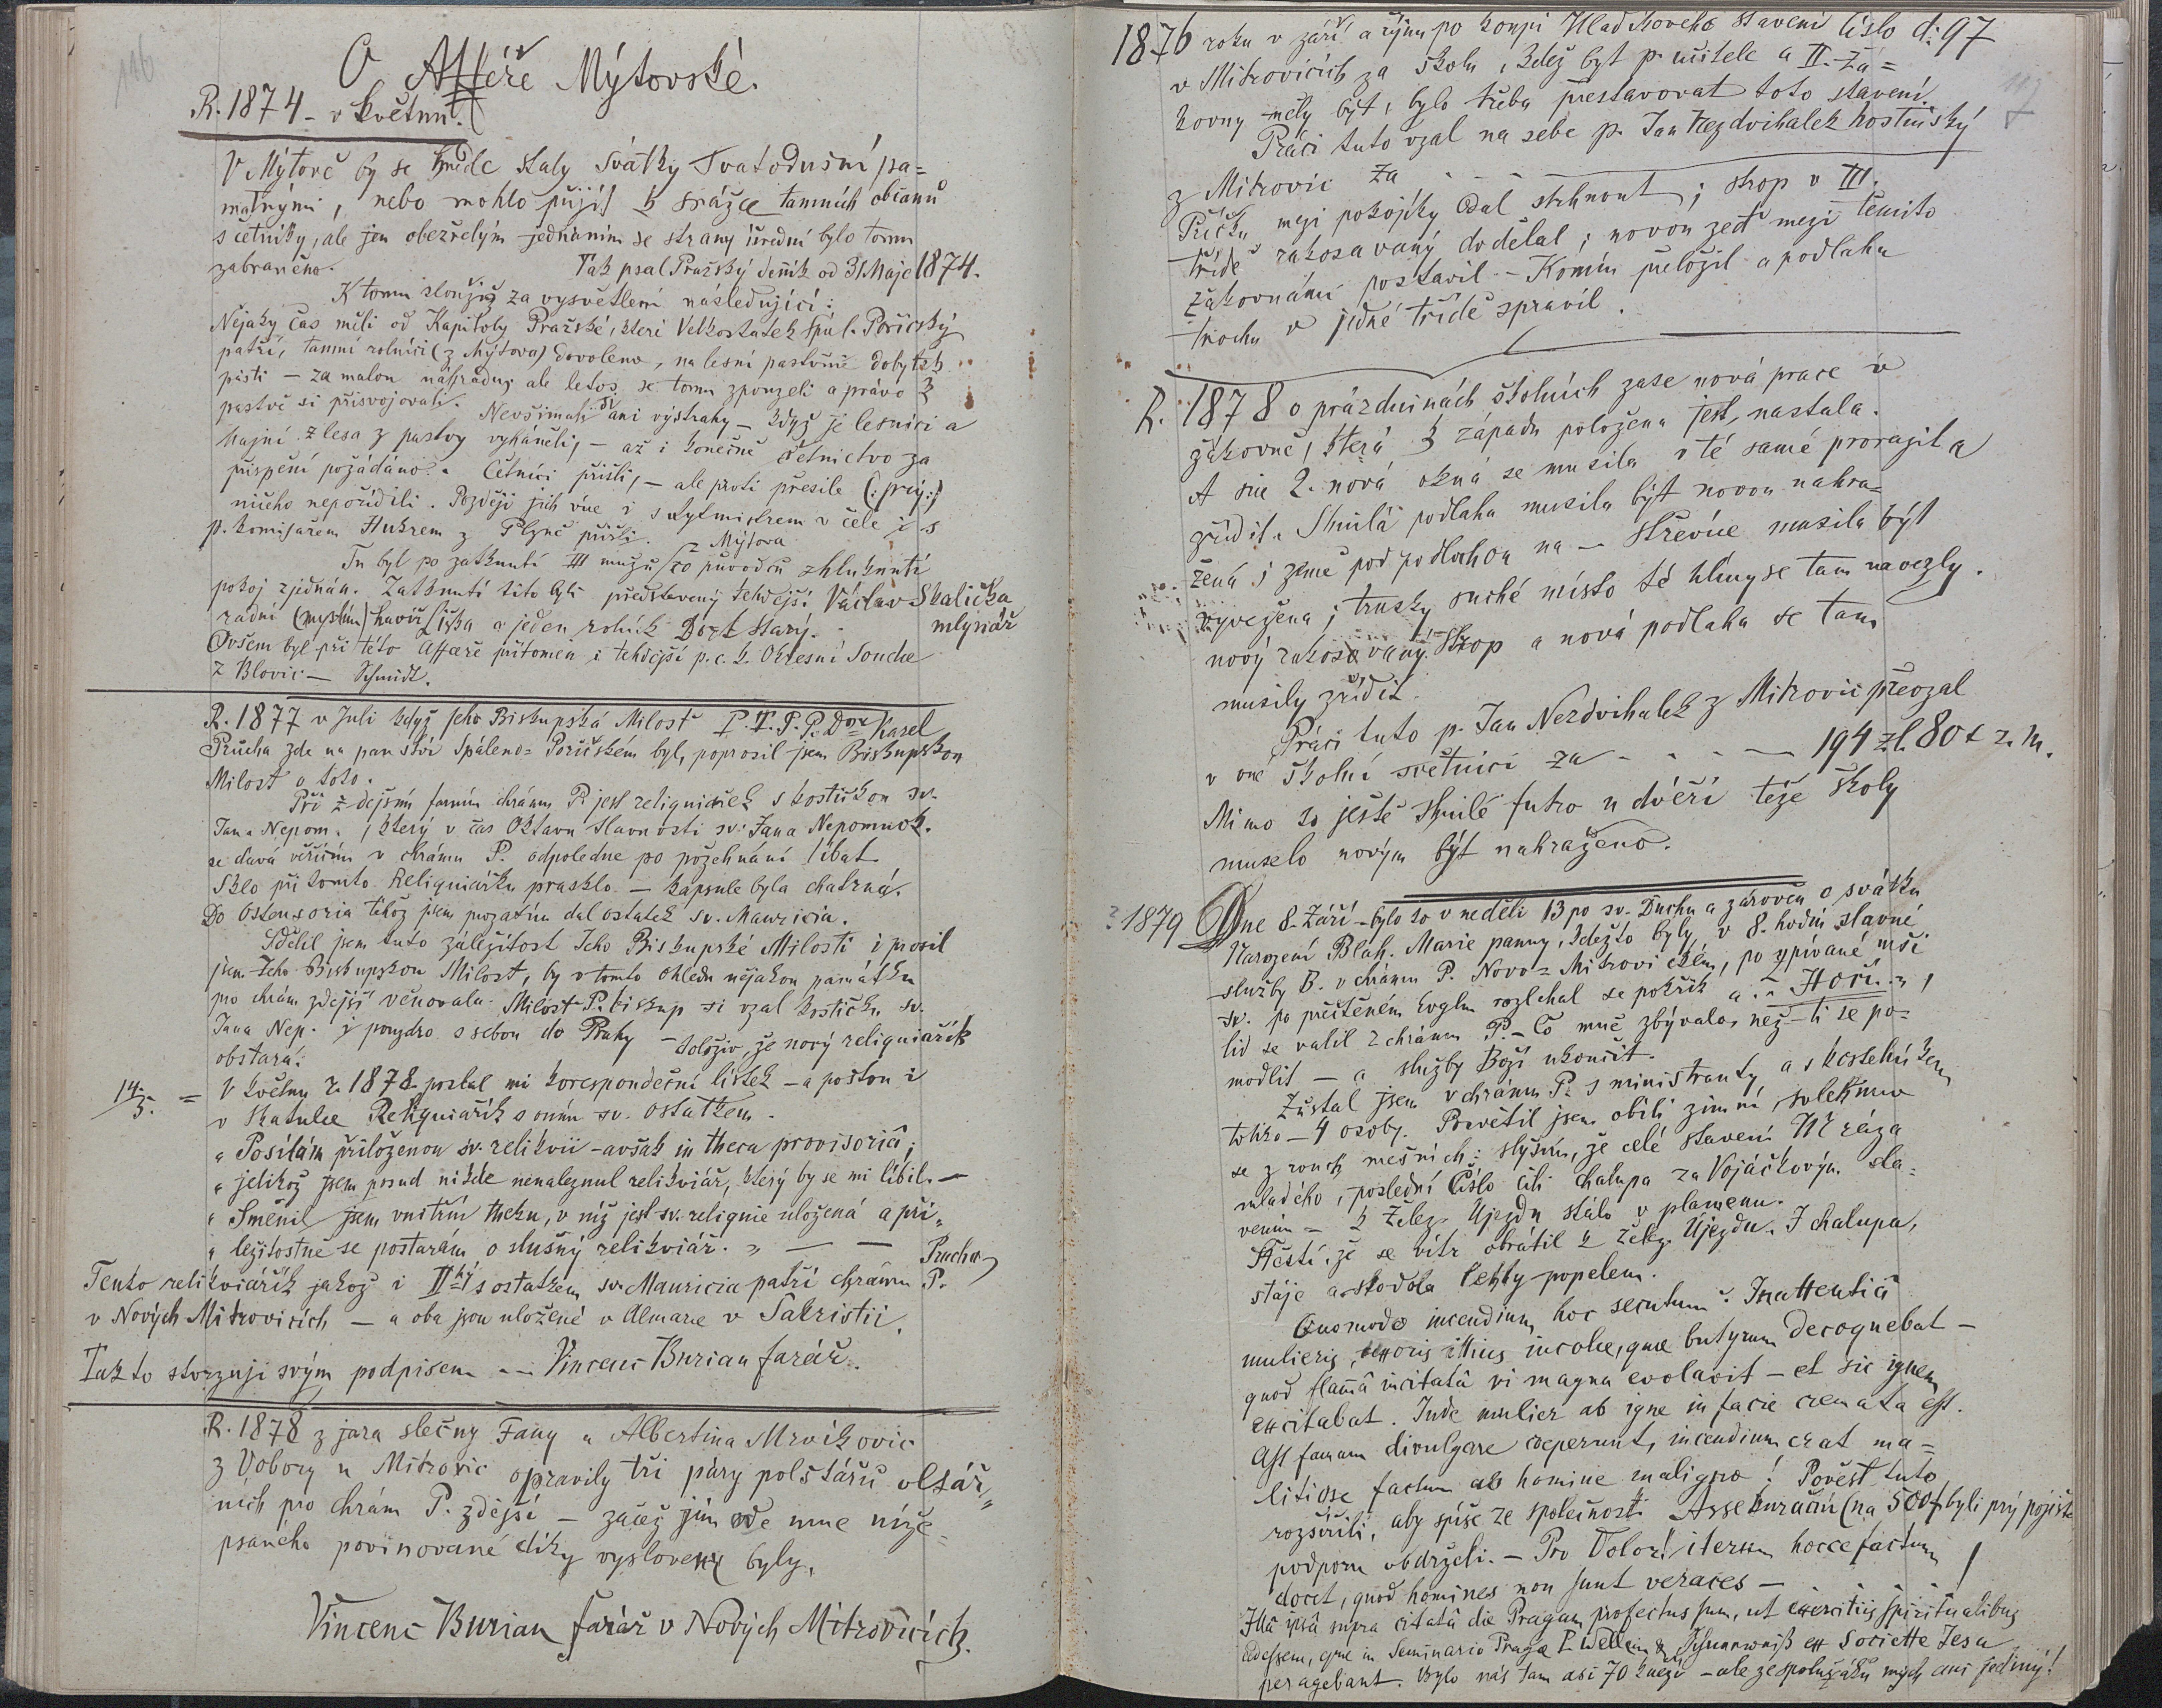 116
O Afféře Mýtovské.
R. 1874 - v květnu.
V Mýtově by se brzde staly svátky Svatodušní pa=
matnými, nebo mohlo přijíti k srážce tamních občanů
s četníky, ale jen obezřelým jednáním se strany úřední bylo tomu
zabraněno. Tak psal Pražský deňník od 31 Maje 1874.
K tomu sloužiž za vysvětlení následující:
Nějaky čas měli od Kapitoly Pražské, které Velkostatek Spál. Poříčský
patří, tamní rolníci (z Mýtova) dovoleno, na lesní pastvině dobytek
pásti — za malou náhradu, ale letos se tomu zpouzeli a právo k
pastvě si přisvojovali. Nevšímali si ani výstrahy — když je lesníci a
hajní z lesa z pastvy vyháněli, — až i konečně četnictvo za
přispění požádáno. Četníci přišli, — ale proti přesile (: prý :)
ničeho nepořídili. Později jich více i s rytmistrem v čele i s
p. komisařem Hukrem z Plzně přišli.
Tu byl po zatknutí III mužů z Mýtova co původců zhluknutí
pokoj zjednán. Zatknutí tito byli představený tehdejší Václav Skalička
radní (myslím) havíř Liška a jeden rolník Dort starý. mlynář
Ovšem byl při této affaeře přítomen i tehdejší p. c. k. Okresní Soudce
z Blovic — Schmidt.
R. 1877 v Juli když Jeho Biskupská Milosť P. T. P. P. Dor Karel
Průcha zde na panství Spáleno=Poříčském byl, poprosil jsem Biskupskou
Milosť o toto.
Při zdejším farním chrámu P. jest reliquiářek s kostičkou sv.
Jana Nepom., který v čas Oktavu slavnosti sv. Jana Nepomuck.
se dává věřícím v chrámu P. odpoledne po požehnání líbat.
Sklo při tomto Reliquiářku prasklo — kapsule byla chatrná.
Do Ostensoria téhož jsem prozatím dal ostatek sv. Mauricia.
Sdělil jsem tuto záležitost Jeho Biskupské Milosti i prosil
jsem Jeho Biskupskou Milost, by v tomto ohledu nějakou památku
pro chrám zdejší věnovala. Milost P. biskup si vzal kostičku sv.
Jana Nep. i pouzdro s sebou do Prahy — doloživ, že nový religuiářík
obstará.
14/5. = V květnu r. 1878 poslal mi korespondeční lístek — a poštou i
v skatulce Reliquiařík s oním sv. ostatkem.
„ Posílám přiloženou sv. relikvii — avšak in theca provisoriâ;
„ jelikož jsem posud nikde nenaleznul relikviář, který by se mi líbil. —
„ Směnil jsem vnitřní theku, v níž jest sv. reliquie uložená a pří„
„ ležitostně se postarám o slušný relikviář. „ — — Prucha
Tento relikviářík jakož i IIhý s ostatkem sv. Mauricia patří chrámu P.
v Nových Mitrovicích — a oba jsou uložené v Almare v Sakristii.
Takto stvrzuji svým podpisem — Vincenc Burian farář.
R. 1878 z jara slečny Fany a Albertina Mrvíkovic
z Vobory u Mitrovic opravily tři páry polštářů oltář„
ních pro chrám P. zdejší — začež jim ode mne níže=
psaného povinované díky vysloveny byly,
Vincenc Burian farář v Nových Mitrovicích.
117
1876 roku v září a říjnu po koupi Hladíkového stavení číslo d: 97
v Mitrovicích za školu, kdež byt p. učitele a II. žá=
kovny měly být, bylo třeba přestavovat toto stavení.
Práci tuto vzal na sebe p. Jan Nezdvihalek hostinský
z Mitrovic za - - - -
Příčku mezi pokojíky dal strhnout; strop v III.
třídě rakosavaný dodělal; novou zeď mezi těmito
žákovnámi postavil — Komín přeložil a podlahu
trochu v jedné třídě spravil.
R. 1878 o prázdninách školních zase nová práce v
žákovně, která k západu položena jest, nastala.
A sice 2. nová okna se musila v té samé prorazit a
zřídit. Shnilá podlaha musila být novou nahra=
žená; země pod podlahou na — střevíce musila být
vyvežena; trusky suché místo té hlíny se tam navezly.
nový rakosovaný strop a nová podlaha se tam
musily zřídit.
Práci tuto p. Jan Nezdvihalek z Mitrovic převzal
v oné školní světnici za - - - — 194 zl. 80 x r. m.
Mimo to ještě shnilé futro u dvéří téže školy
muselo novým být nahraženo.
? 1879 Dne 8. Září — bylo to v neděli 13 po sv. Duchu a zároveň o svátku
Narození Blah. Marie panny, kdežto byly v 8. hodin slavné
služby B. v chrámu P. Novo=Mitrovickém, po zpívané mši
sv. po přečteném Evglm rozlehal se pokřik a: „ Hoří „,
lid se valil z chrámu P. — Co mně zbývalo, než — ti se po=
modlit — a služby Boží ukončit.
Zůstal jsem v chrámu P. s ministranty a s kostelníkem
toliko — 4 osoby. Posvětil jsem obilí zimní, svleknuv
se z rouch mešních: slyším, že celé stavení Mráza
mladého, poslední číslo čili chalupa za Vojáčkovým sta=
vením — k Želez. Újezdu stálo v plamenu.
Štěstí, že se vítr obrátil k Želez. Újezdu. I chalupa,
stáje a stodola lehly popelem.
Quomodo incendium hoc secutum? Inattentiâ
mulieris, uxoris illius incolae, quae butyrum decoquebat —
quod flamâ incitatâ vi magna evolavit — et sic ignem
excitabat. Inde mulier ab igne in facie cremata est.
Ast famam divulgare coeperunt, incendium erat ma=
litiose factum ab homine maligno! Pověst tuto
rozšířili, aby spíše ze společnosti Assekurační (na 500 f byli prý pojišt
podporu obdrželi. — Pro Dolor! iterum hocce factum
docet, quod homines non sunt veraces —
Illâ ipsâ supra citatâ die Pragam profectus sum, ut exercitiis spiritualibus
adessem, quae in Seminario Pragae P. Wellein ex Societte Jesu
peragebant. Bylo nás tam asi 70 kněží — ale ze spolužáků mých ani jediný!